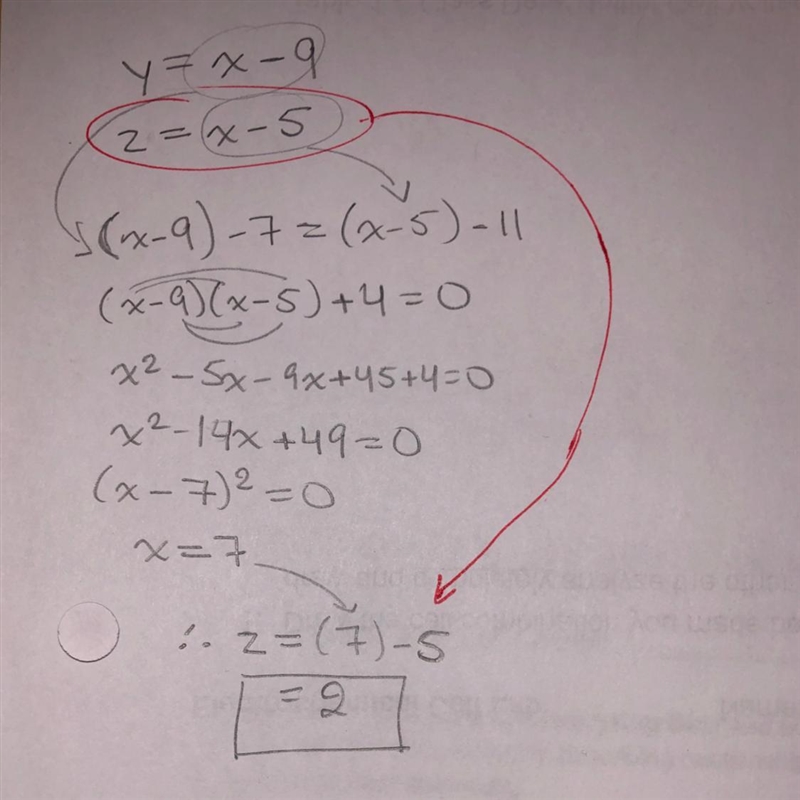 y = x - 9
z = x - 5
(x-9) - 7 = (x-5) - 11
(x-9)(x-5) + 4 = 0
x² - 5x - 9x + 45 + 4 = 0
x² - 14x + 49 = 0
(x - 7)² = 0
x = 7
∴ z = (7) - 5
= 2